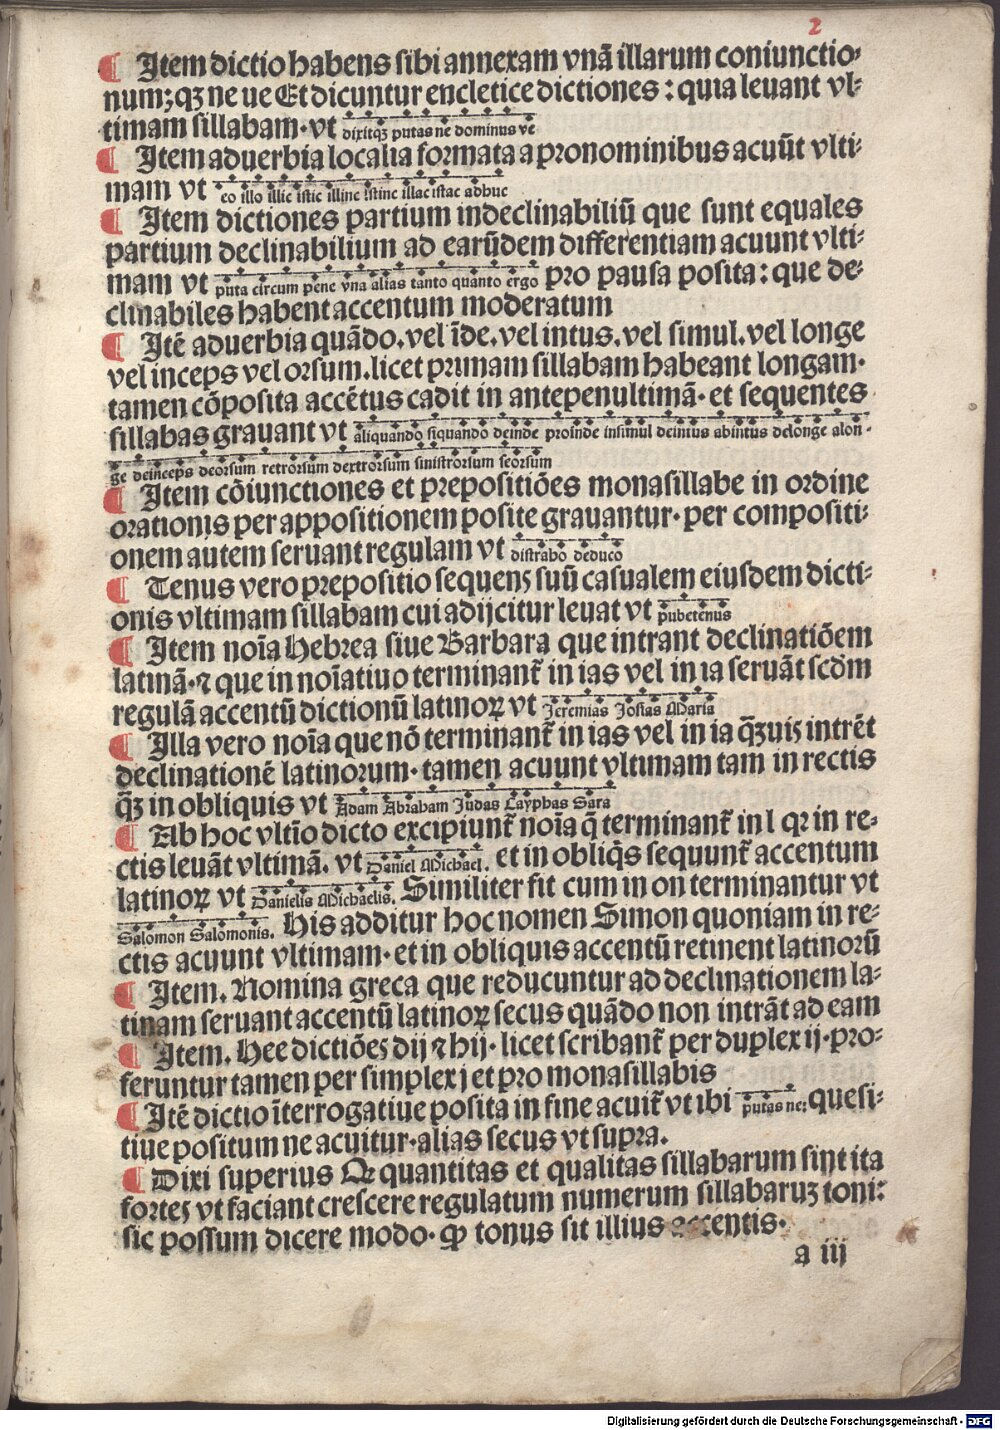 2
¶ Item dictio habens sibi annexam vnā illarum coniunctio⸗
num; qꝫ ne ue Et dicuntur encletice dictiones : quia leuant vl⸗
timam sillabam · vt dixitqꝫ putas ne dominus ve
¶ Item aduerbia localia formata a pronominibus acuūt vlti⸗
mam vt eo illo illic istic illinc istinc illac istac adhuc
¶ Item dictiones partium indeclinabiliū que sunt equales
partium declinabilium ad earūdem differentiam acuunt vlti⸗
mam vt puta circum pene vna alias tanto quanto ergo pro pausa posita : que de⸗
clinabiles habent accentum moderatum
¶ Itē aduerbia quādo. vel īde. vel intus. vel simul. vel longe
vel inceps vel orsum. licet primam sillabam habeant longam ·
tamen cōposita accētus cadit in antepenultimā · et sequentes
sillabas grauant vt aliquando siquando deinde proinde insimul deintus abintus delonge alon⸗
ge deinceps deorsum retrorsum dextrorsum sinistrorsum seorsum
¶ Item cōiunctiones et prepositiōes monasillabe in ordine
orationis per appositionem posite grauantur · per compositi⸗
onem autem seruant regulam vt distrabo deduco
¶ Tenus vero prepositio sequens suū casualem eiusdem dicti⸗
onis vltimam sillabam cui adijcitur leuat vt pubetenus
¶ Item noīa Hebrea siue Barbara que intrant declinatiōem
latinā · ⁊ que in noīatiuo terminant̄ in ias vel in ia seruāt scd̄m
regulā accentū dictionū latinoꝝ vt Jeremias Josias Maria
¶ Illa vero noīa que nō terminant̄ in ias vel in ia qꝫuis intrēt
declinationē latinorum · tamen acuunt vltimam tam in rectis
qꝫ in obliquis vt Adam Abrabam Judas Cayphas Sara
¶ Ab hoc vltīo dicto excipiunt̄ noīa q̄ terminant̄ in l qꝛ in re⸗
ctis leuāt vltimā. vt Daniel Michael. et in obliq̄s sequunt̄ accentum
latinoꝝ vt Danielis Michaelis. Similiter fit cum in on terminantur vt
Salomon Salomonis. His additur hoc nomen Simon quoniam in re⸗
ctis acuunt vltimam · et in obliquis accentū retinent latinorū
¶ Item. Nomina greca que reducuntur ad declinationem la⸗
tinam seruant accentū latinoꝝ secus quādo non intrāt ad eam
¶ Item. Hee dictiōes dij ⁊ hij · licet scribant̄ per duplex ij · pro⸗
feruntur tamen per simplex j et pro monasillabis
¶ Itē dictio īterrogatiue posita in fine acuit̄ vt ibi putas ne: quesi⸗
tiue positum ne acuitur · alias secus vt supra.
¶ Dixi superius Qꝛ quantitas et qualitas sillabarum sint ita
fortes vt faciant crescere regulatum numerum sillabaruꝫ toni:
sic possum dicere modo · ꝙ tonus sit illius accentis ·
a iij
Digitalisierung gefördert durch die Deutsche Forschungsgemeinschaft - DFG